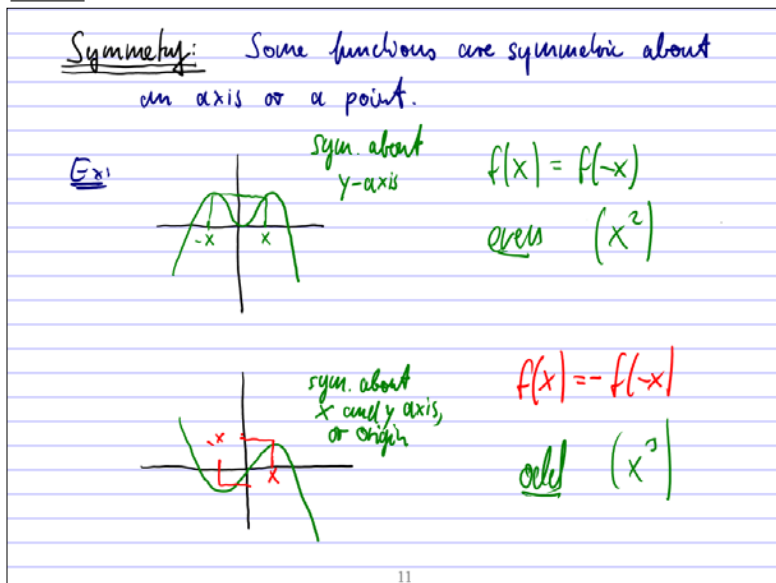 Symmetry: Some functions are symmetric about
an axis or a point.
Ex:
sym. about
y-axis
f(x) = f(-x)
even (x²)
-x x
sym. about
x and y axis,
or origin
f(x) = - f(-x)
odd (x³)
-x
x
11